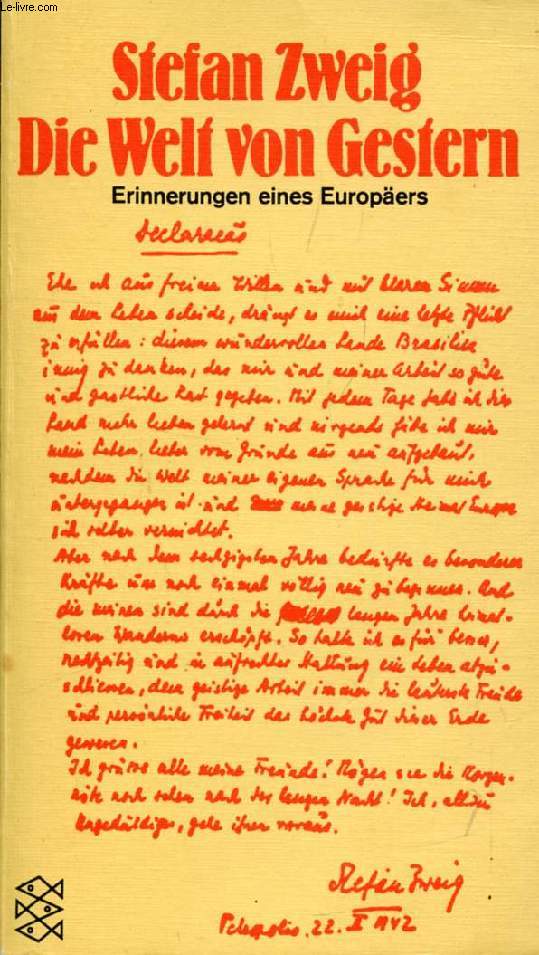 Le-livre.com
Stefan Zweig
Die Welt von Gestern
Erinnerungen eines Europäers
Declaracão
Ehe ich aus freiem Willen und mit klaren Sinnen
aus dem Leben scheide, drängt es mich eine letzte Pflicht
zu erfüllen: diesem wundervollen Lande Brasilien
innig zu danken, das mir und meiner Arbeit so gute
und gastliche Rast gegeben. Mit jedem Tage habe ich dies
Land mehr lieben gelernt und nirgends hätte ich mir
mein Leben lieber vom Grunde aus neu aufgebaut,
nachdem die Welt meiner eigenen Sprache für mich
untergegangen ist und meine geistige Heimat Europa
sich selber vernichtet.
Aber nach dem sechzigsten Jahre bedürfte es besonderer
Kräfte um noch einmal völlig neu zu beginnen. Und
die meinen sind durch die langen Jahre heimat-
losen Wanderns erschöpft. So halte ich es für besser,
rechtzeitig und in aufrechter Haltung ein Leben abzu-
schliessen, dem geistige Arbeit immer die lauterste Freude
und persönliche Freiheit das höchste Gut dieser Erde
gewesen.
Ich grüsse alle meine Freunde! Mögen sie die Morgen-
röte noch sehen nach der langen Nacht! Ich, allzu
Ungeduldiger, gehe ihnen voraus.
Stefan Zweig
Petropolis, 22. II 1942